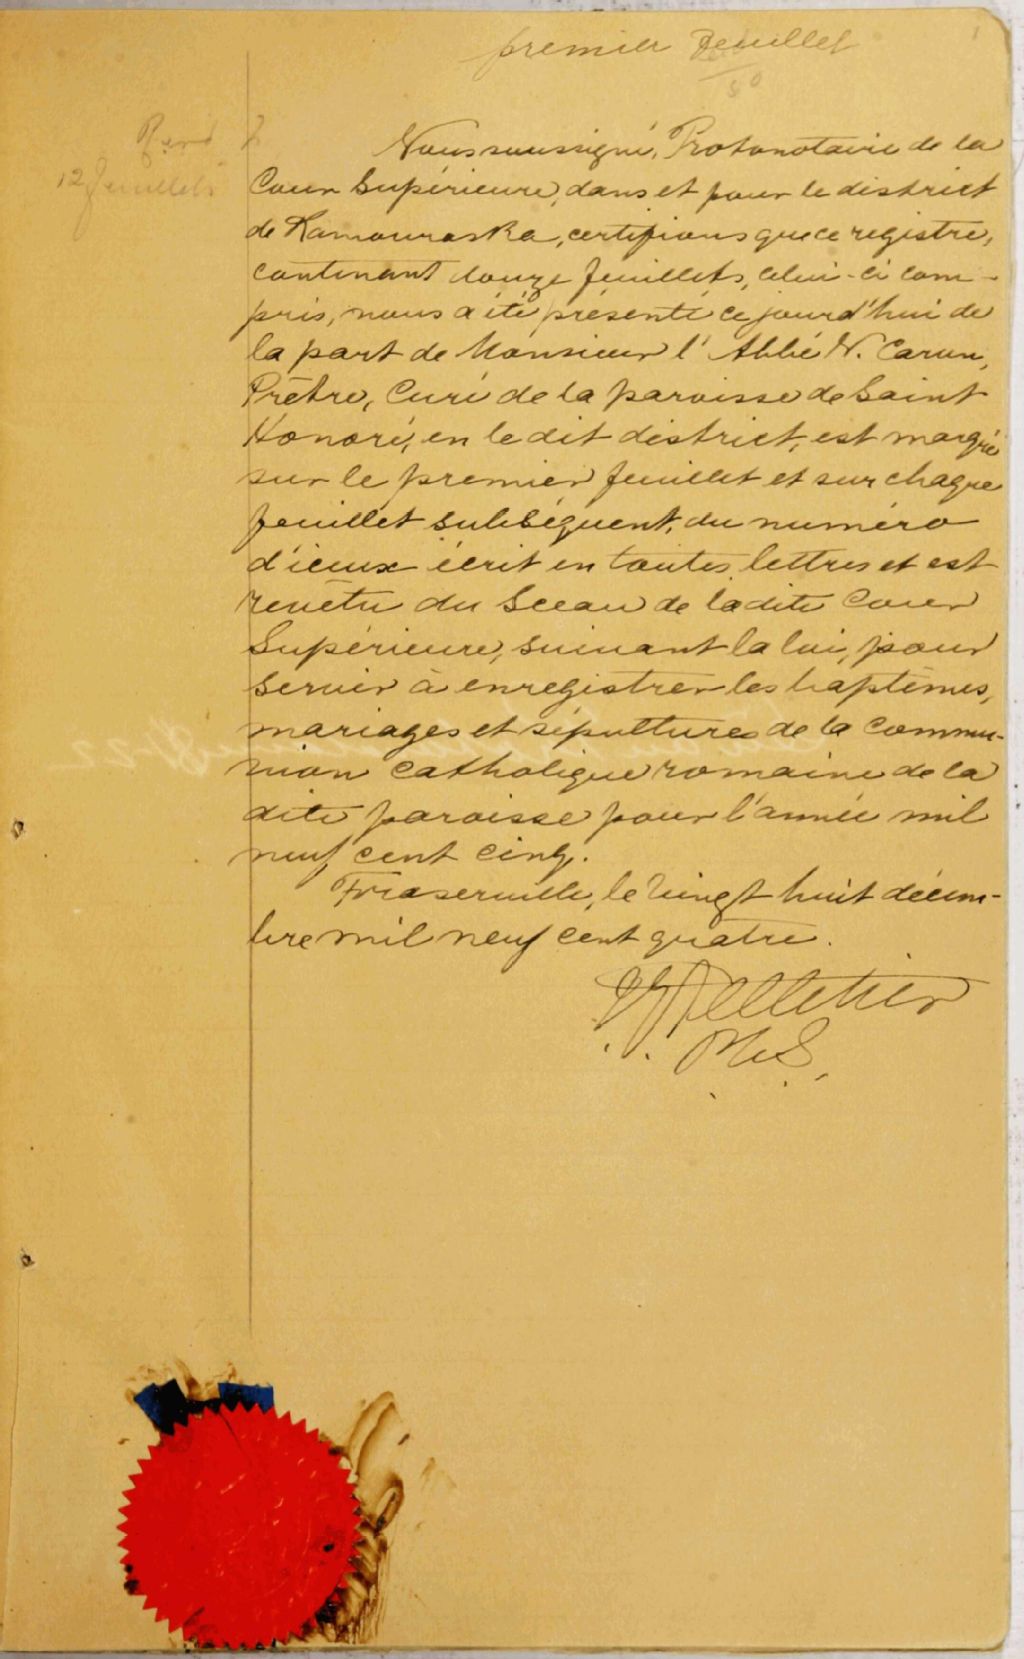 premier feuillet
12 feuillets
Nous soussigné, Protonotaire de la
Cour Supérieure, dans et pour le district
de Kamouraska, certifions que ce registre,
contenant douze feuillets, celui-ci com-
pris, nous a été présenté ce jourd'hui de
la part de Monsieur l'Abbé N. Caron,
Prêtre, Curé de la paroisse de Saint
Honoré, en le dit district, est margé
sur le premier feuillet et sur chaque
feuillet subséquent, du numéro
d'iceux écrit en toutes lettres et est
revêtu du Sceau de la dite Cour
Supérieure, suivant la loi, pour
servir à enregistrer les baptêmes,
mariages et sépultures de la commu-
nion catholique romaine de la
dite paroisse pour l'année mil
neuf cent cinq.
Fraserville, le vingt huit décem-
bre mil neuf cent quatre.
Pelletier
P.C.S.